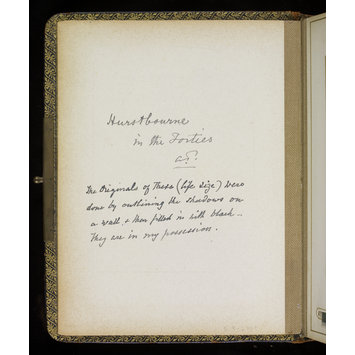 Hurstbourne
in the Forties
The Originals of These (life size) were
done by outlining the shadows on
a wall & then filled in with black –
They are in my possession.